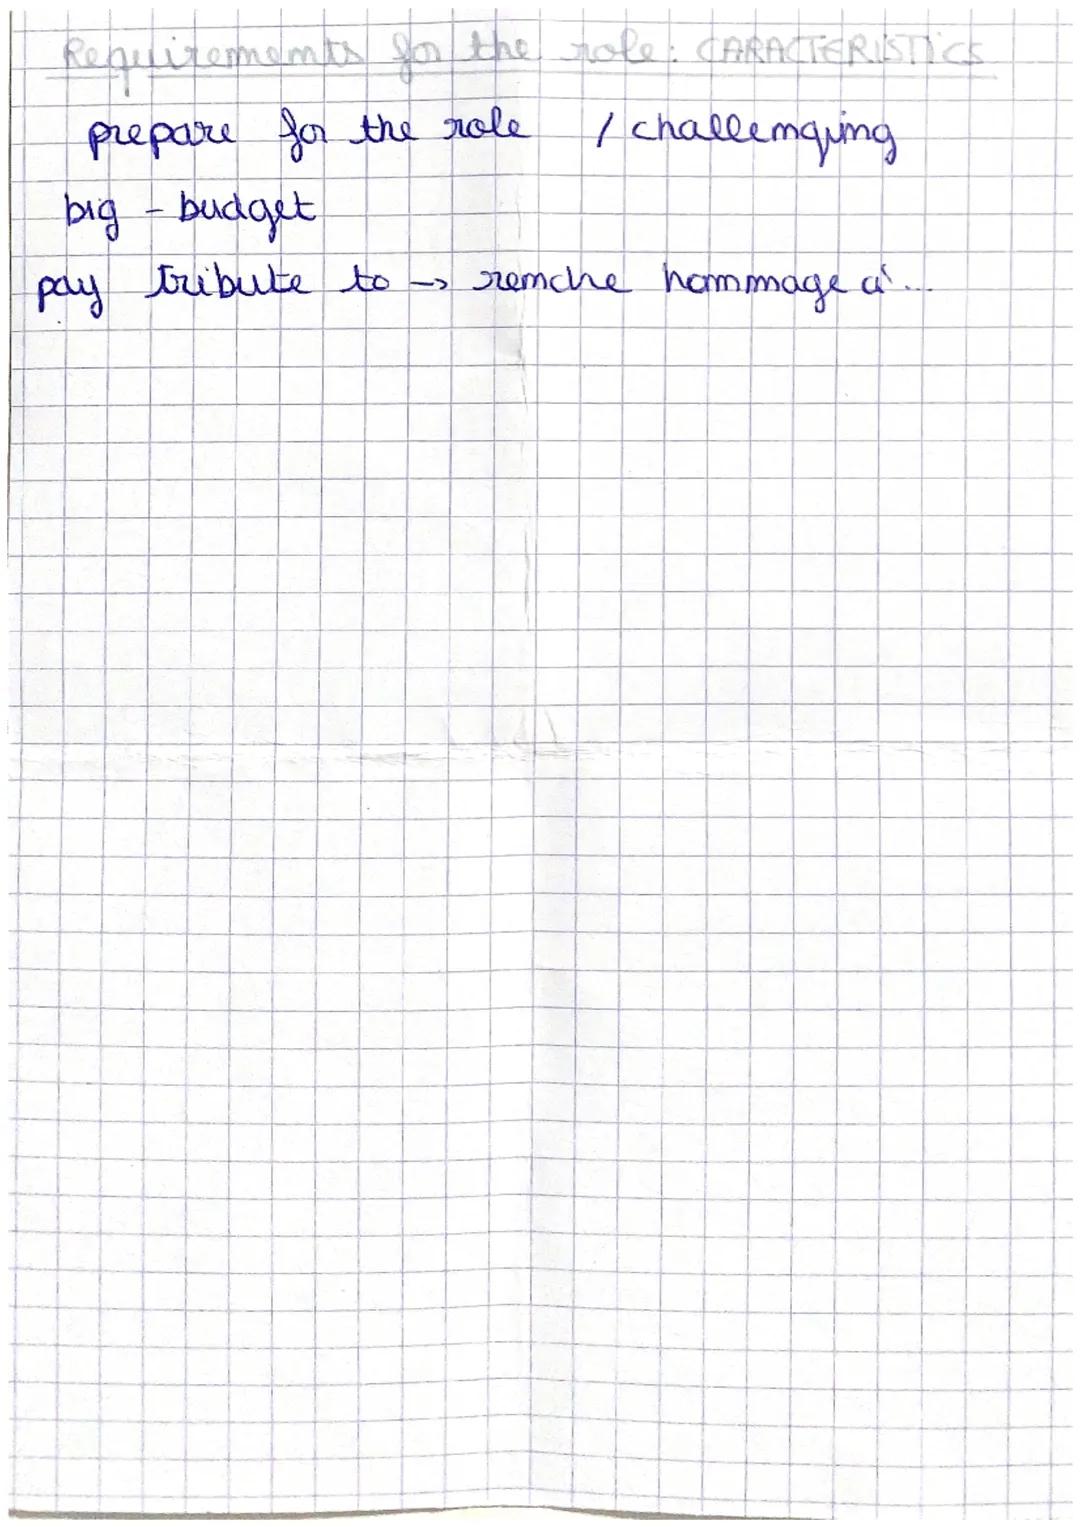 Requirements for the role: CARACTERISTICS
prepare for the role / challenging
big - budget
pay tribute to → rendre hommage à...